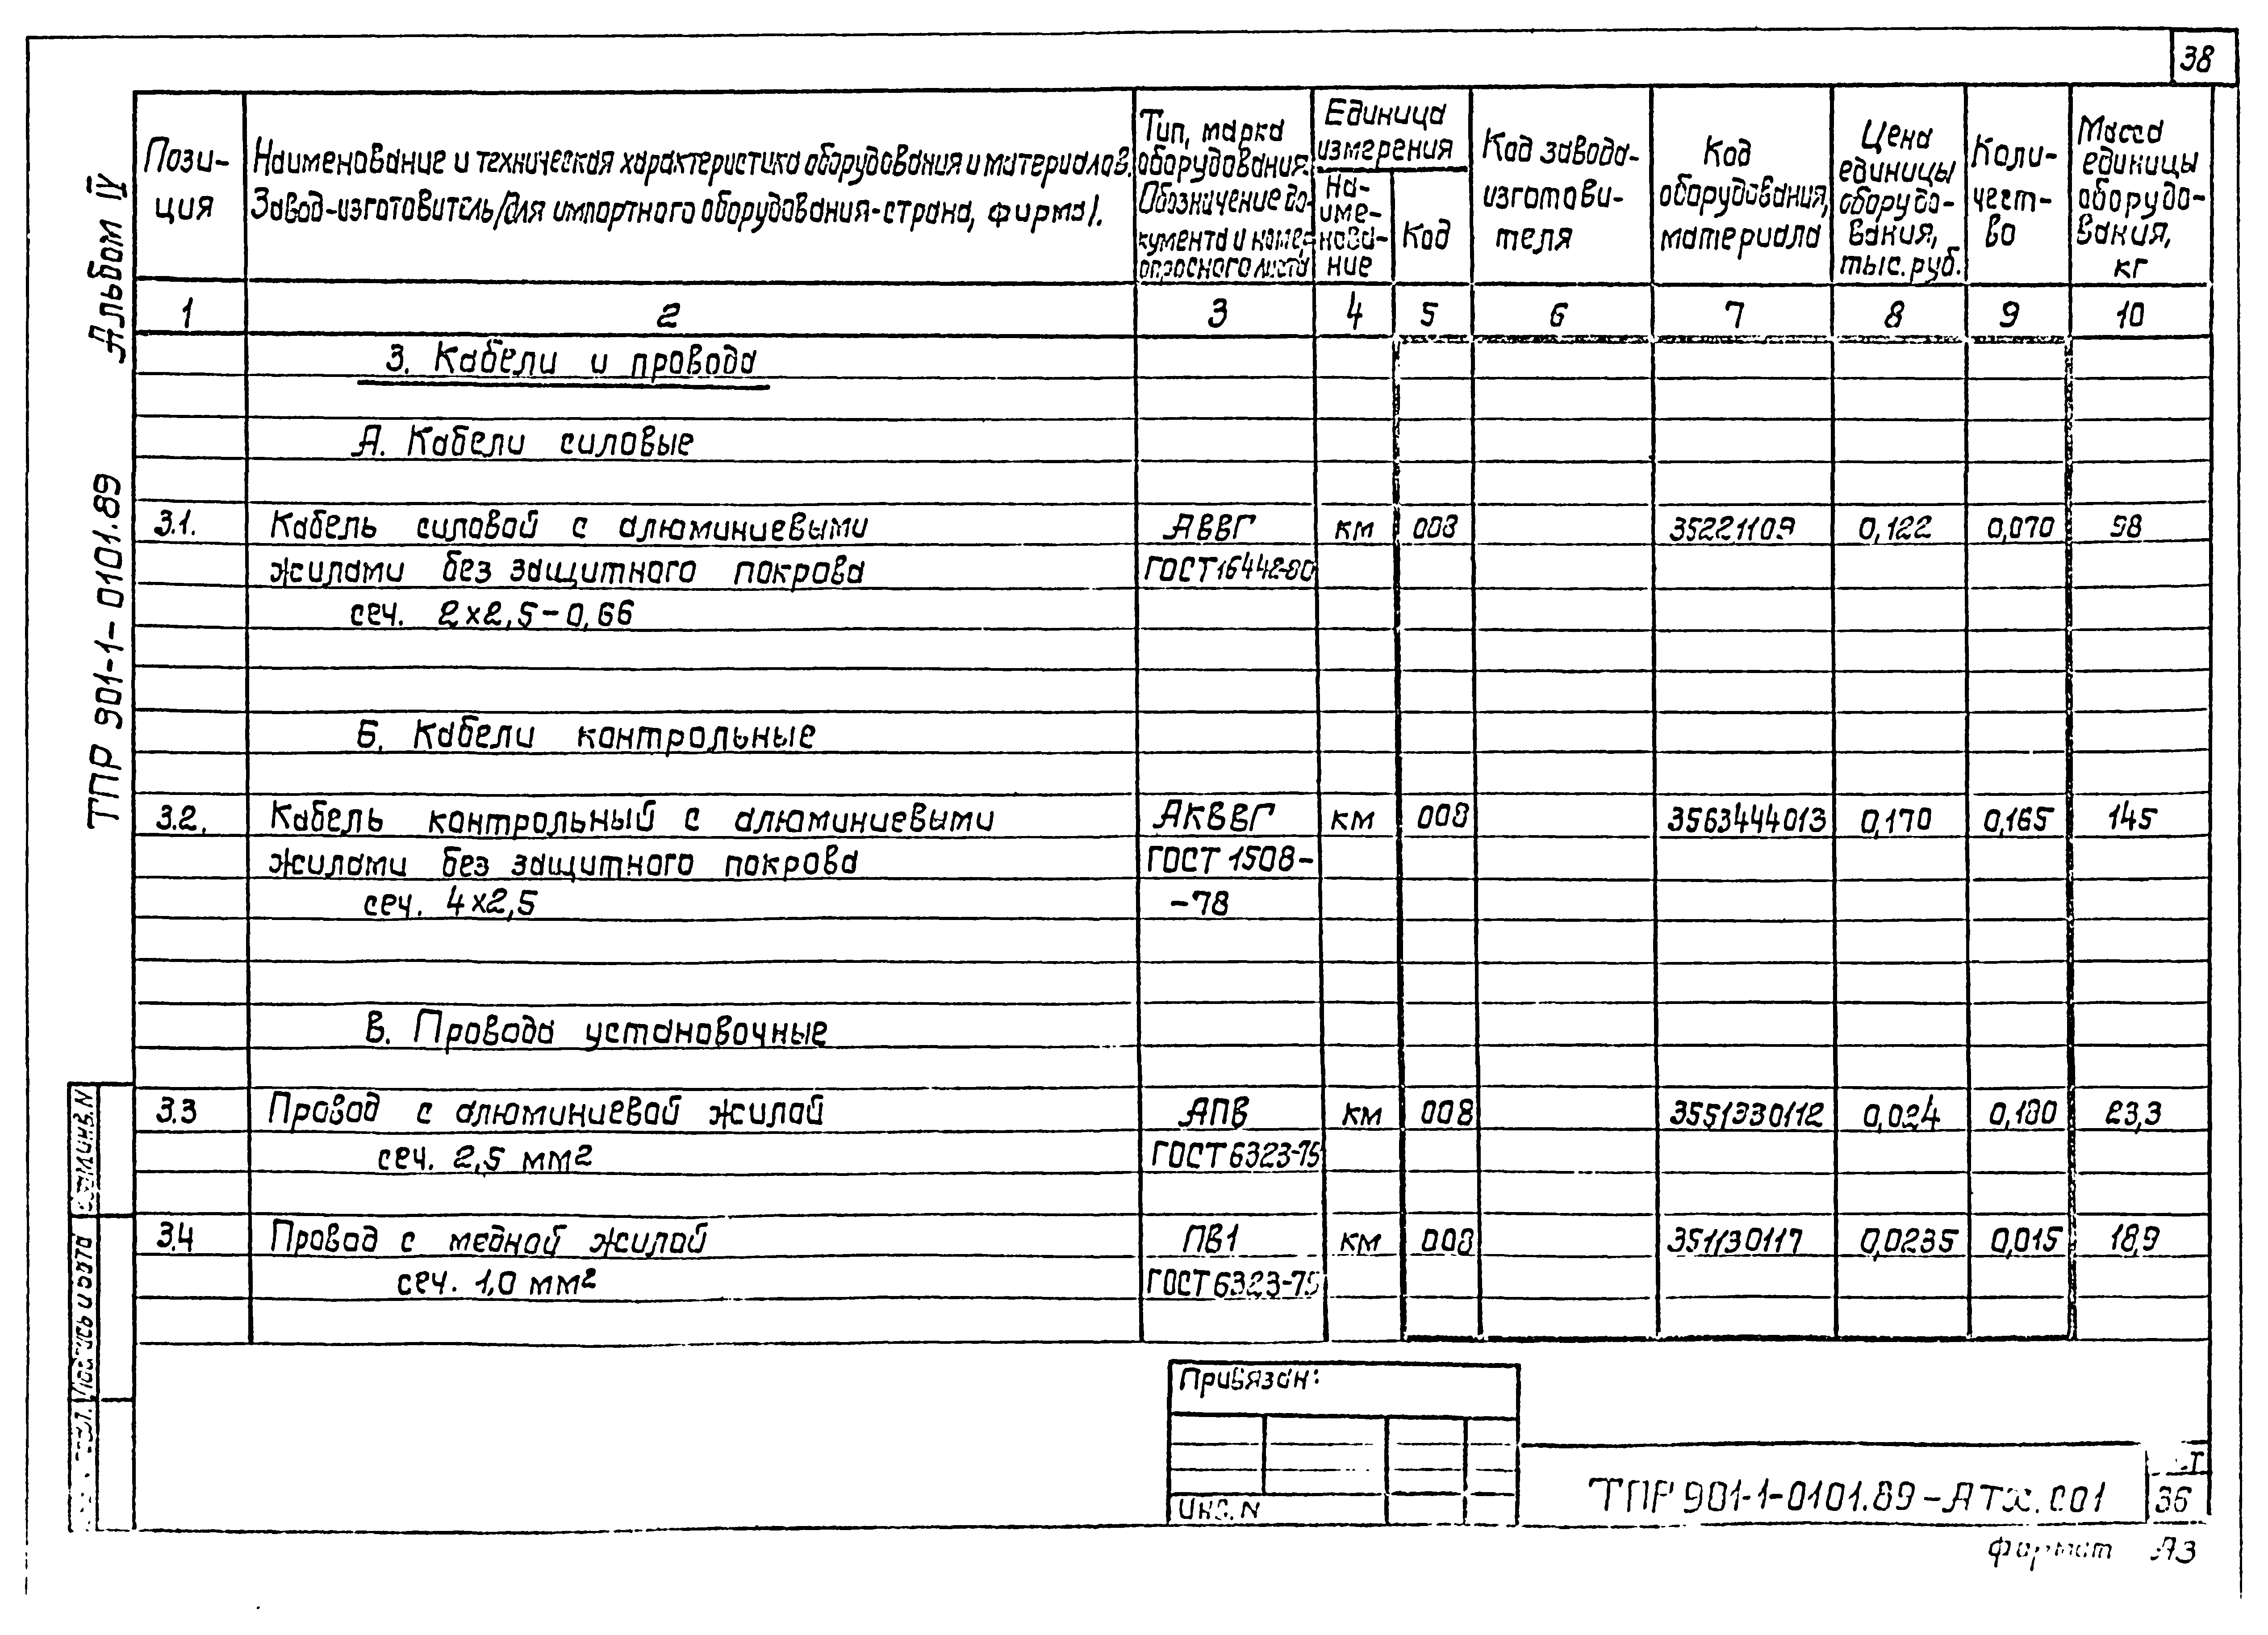 38
Альбом IV
ТПР 901-1-0101.89
Пози-
ция
Наименование и техническая характеристика оборудования и материалов.
Завод-изготовитель/для импортного оборудования-страна, фирма/.
Тип, марка
оборудования.
Обозначение до-
кумента и номер
опросного листа
Единица
измерения
На-
име-
нова-
ние
Код
Код завода-
изготови-
теля
Код
оборудования,
материала
Цена
единицы
оборудо-
вания,
тыс. руб.
Коли-
чест-
во
Масса
единицы
оборудо-
вания,
кг
1 2 3 4 5 6 7 8 9 10
3. Кабели и провода
А. Кабели силовые
3.1. Кабель силовой с алюминиевыми АВВГ км 008 35221109 0,122 0,070 98
жилами без защитного покрова ГОСТ 16442-80
сеч. 2х2,5-0,66
Б. Кабели контрольные
3.2. Кабель контрольный с алюминиевыми АКВВГ км 008 3563444013 0,170 0,165 145
жилами без защитного покрова ГОСТ 1508-
сеч. 4х2,5 -78
В. Провода установочные
3.3 Провод с алюминиевой жилой АПВ км 008 3551330112 0,024 0,180 23,3
сеч. 2,5 мм2 ГОСТ 6323-75
3.4 Провод с медной жилой ПВ1 км 008 351130117 0,0235 0,015 18,9
сеч. 1,0 мм2 ГОСТ 6323-75
Взам.инв.N
Подпись и дата
Привязан:
Инв. N
ТПР 901-1-0101.89-АТХ.С01
36
формат А3